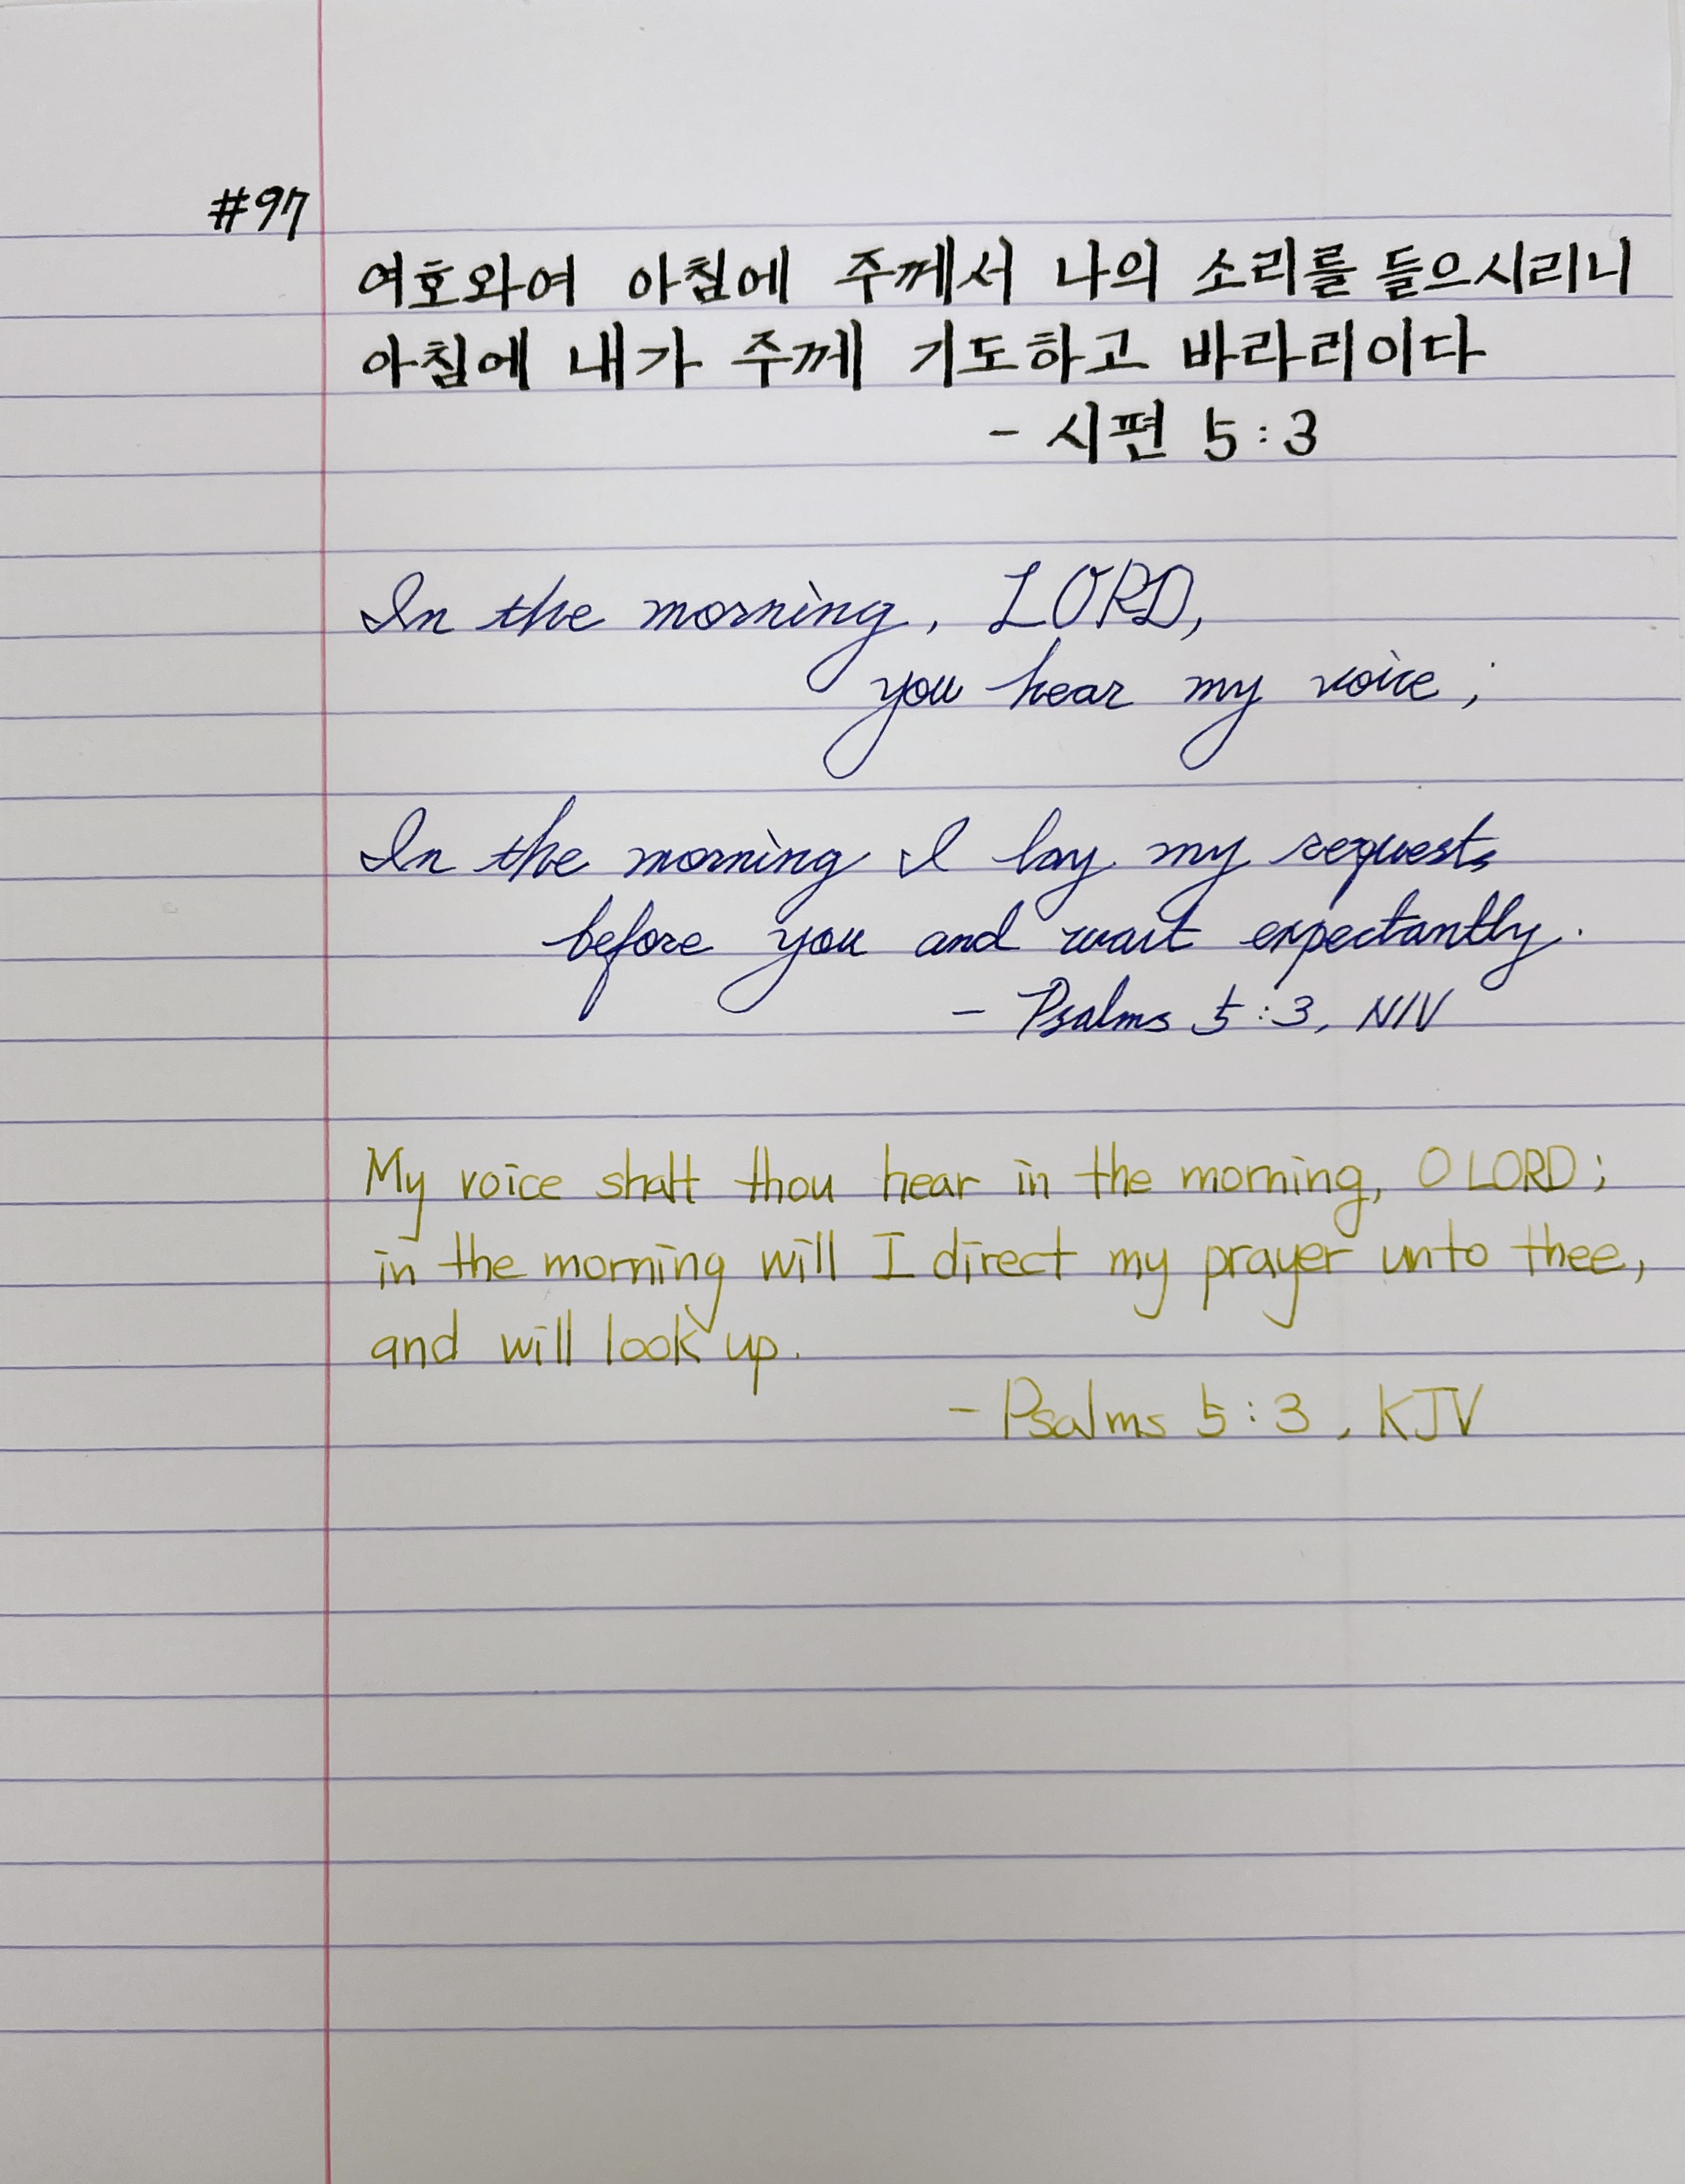 #97
여호와여 아침에 주께서 나의 소리를 들으시리니
아침에 내가 주께 기도하고 바라리이다
- 시편 5:3
In the morning, LORD,
you hear my voice;
In the morning I lay my requests
before you and wait expectantly.
- Psalms 5:3, NIV
My voice shalt thou hear in the morning, O LORD;
in the morning will I direct my prayer unto thee,
and will look up.
- Psalms 5:3, KJV